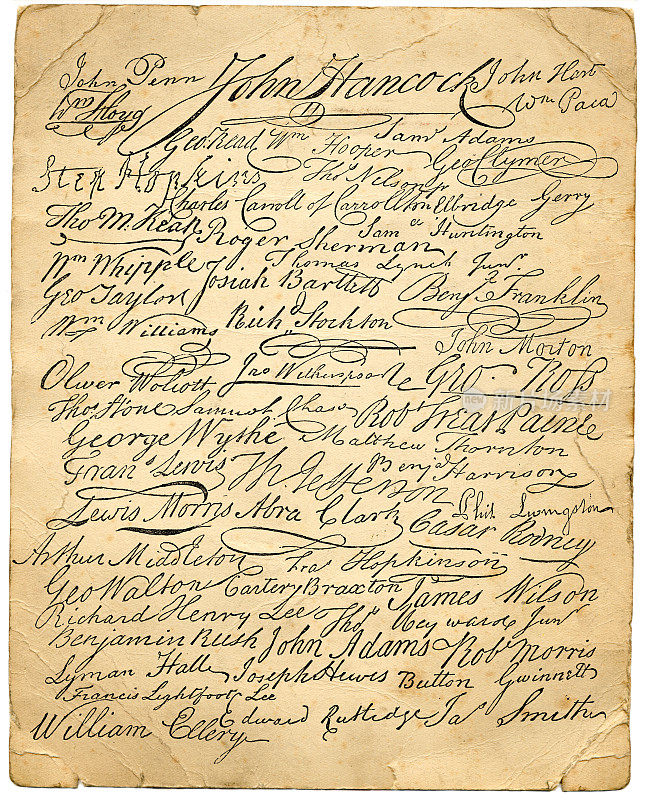 John Penn John Hancock John Hart
Wm Floyd Wm Paca
Geo Read Wm Hooper Saml Adams
Step Hopkins Thos Nelson jr Geo Clymer
Charles Carroll of Carrollton Elbridge Gerry
Tho M. Kean Roger Sherman Saml Huntington
Wm Whipple Thomas Lynch Junr.
Geo Taylor Josiah Bartlett Benja Franklin
Wm Williams Richd Stockton John Morton
Oliver Wolcott Jno Witherspoon Geo Ross
Thos Stone Samuel Chase Robt Treat Paine
George Wythe Matthew Thornton
Frans Lewis Th. Jefferson Benja Harrison
Lewis Morris Abra Clark Phil Livingston
Cæsar Rodney
Arthur Middleton Fras Hopkinson
Geo Walton Carter Braxton James Wilson
Richard Henry Lee Thos Heyward Junr
Benjamin Rush John Adams Robt Morris
Lyman Hall Joseph Hewes Button Gwinnett
Francis Lightfoot Lee
William Ellery Edward Rutledge Jas Smith